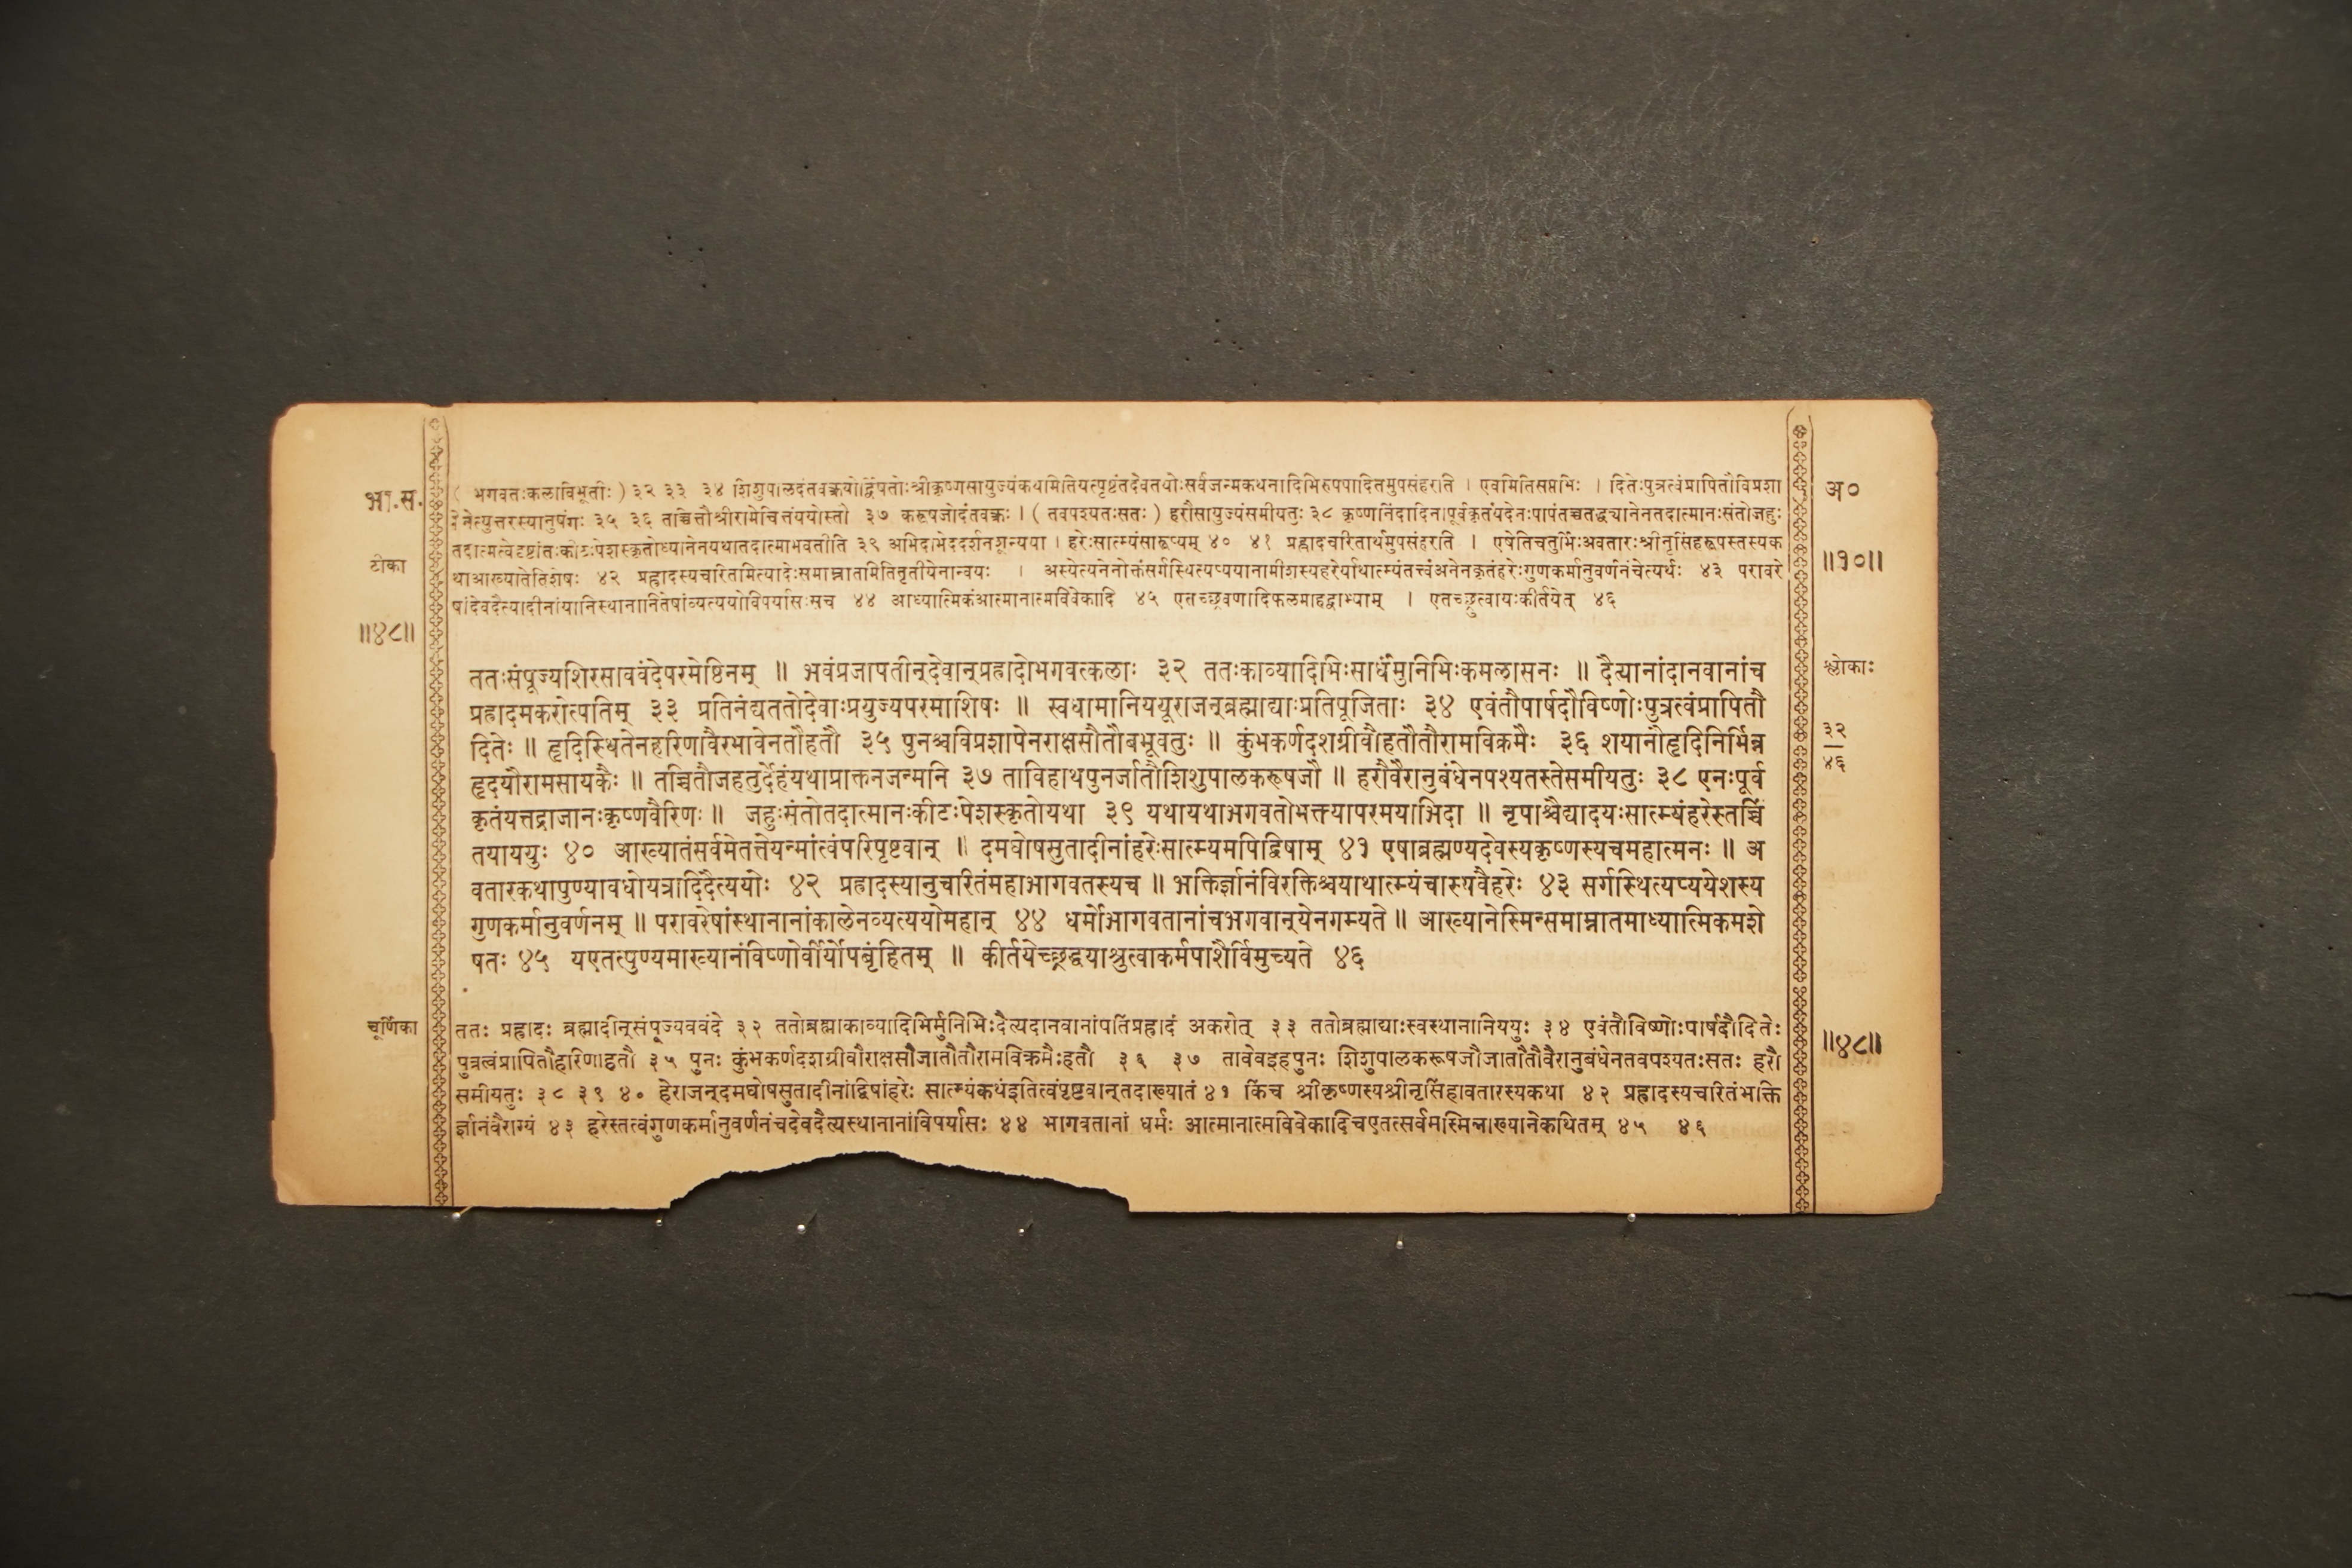 भा.स.
टीका
॥४८॥
( भगवतःकलाविभूतीः ) ३२ ३३ ३४ शिशुपालदंतवक्रयोर्द्विषतोःश्रीकृष्णसायुज्यंकथमितियत्पृष्टंतदेवतयोःसर्वजन्मकथनादिभिरुपपादितमुपसंहरति । एवमितिसप्तभिः । दितेःपुत्रत्वंप्रापितौविप्रशा
पेनेत्युत्तरस्यानुषंगः ३५ ३६ तच्चित्तौश्रीरामेचित्तंययोस्तौ ३७ करूषजोदंतवक्रः । ( तवपश्यतःसतः ) हरौसायुज्यंसमीयतुः ३८ कृष्णनिंदादिनापूर्वकृतंयदेनःपापंतच्चतद्ध्यानेनतदात्मानःसंतोजहुः
तदात्मत्वेदृष्टांतःकीटःपेशस्कृतोध्यानेनयथातदात्माभवतीति ३९ अभिदाभेददर्शनशून्यया । हरेःसात्म्यंसारूप्यम् ४० ४१ प्रह्लादचरितार्थमुपसंहरति । एषेतिचतुर्भिःअवतारःश्रीनृसिंहरूपस्तस्यक
थाआख्यातेतिशेषः ४२ प्रह्लादस्यचरितमित्यादेःसमाम्नातमितितृतीयेनान्वयः । अस्येत्यनेनोक्तंसर्गस्थित्यप्ययानामीशस्यहरेर्याथात्म्यंतत्त्वंअनेनकृतंहरेःगुणकर्मानुवर्णनंचेत्यर्थः ४३ परावरे
षांदेवदैत्यादीनांयानिस्थानानितेषांव्यत्ययोविपर्यासःसच ४४ आध्यात्मिकंआत्मानात्मविवेकादि ४५ एतच्छ्रवणादिफलमाहद्वाभ्याम् । एतच्छ्रुत्वायःकीर्तयेत् ४६
ततःसंपूज्यशिरसाववंदेपरमेष्ठिनम् ॥ भवंप्रजापतीन्देवान्प्रह्लादोभगवत्कलाः ३२ ततःकाव्यादिभिःसार्धंमुनिभिःकमलासनः ॥ दैत्यानांदानवानांच
प्रह्लादमकरोत्पतिम् ३३ प्रतिनंद्यततोदेवाःप्रयुज्यपरमाशिषः ॥ स्वधामानिययूराजन्ब्रह्माद्याःप्रतिपूजिताः ३४ एवंतौपार्षदौविष्णोःपुत्रत्वंप्रापितौ
दितेः ॥ हृदिस्थितेनहरिणावैरभावेनतौहतौ ३५ पुनश्चविप्रशापेनराक्षसौतौबभूवतुः ॥ कुंभकर्णदशग्रीवौहतौतौरामविक्रमैः ३६ शयानौहृदिनिर्भिन्न
हृदयौरामसायकैः ॥ तच्चितौजहतुर्देहंयथाप्राक्तनजन्मनि ३७ ताविहाथपुनर्जातौशिशुपालकरूषजौ ॥ हरौवैरानुबंधेनपश्यतस्तेसमीयतुः ३८ एनःपूर्व
कृतंयत्तद्राजानःकृष्णवैरिणः ॥ जहुःसंतोतदात्मानःकीटःपेशस्कृतोयथा ३९ यथायथाभगवतोभक्त्यापरमयाभिदा ॥ नृपाश्चैद्यादयःसात्म्यंहरेस्तच्चिं
तयाययुः ४० आख्यातंसर्वमेतत्तेयन्मांत्वंपरिपृष्टवान् ॥ दमघोषसुतादीनांहरेःसात्म्यमपिद्विषाम् ४१ एषाब्रह्मण्यदेवस्यकृष्णस्यचमहात्मनः ॥ अ
वतारकथापुण्यावधोयत्रादिदैत्ययोः ४२ प्रह्लादस्यानुचरितंमहाभागवतस्यच ॥ भक्तिर्ज्ञानंविरक्तिश्चयाथात्म्यंचास्यवैहरेः ४३ सर्गस्थित्यप्ययेशस्य
गुणकर्मानुवर्णनम् ॥ परावरेषांस्थानानांकालेनव्यत्ययोमहान् ४४ धर्मोभागवतानांचभगवान्येनगम्यते ॥ आख्यानेस्मिन्समाम्नातमाध्यात्मिकमशे
षतः ४५ यएतत्पुण्यमाख्यानंविष्णोर्वीर्योपबृंहितम् ॥ कीर्तयेच्छ्रद्धयाश्रुत्वाकर्मपाशैर्विमुच्यते ४६
चूर्णिका
ततः प्रह्लादः ब्रह्मादीन्संपूज्यववंदे ३२ ततोब्रह्माकाव्यादिभिर्मुनिभिःदैत्यदानवानांपतिंप्रह्लादं अकरोत् ३३ ततोब्रह्माद्याःस्वस्थानानिययुः ३४ एवंतौविष्णोःपार्षदौदितेः
पुत्रत्वंप्रापितौहरिणाहतौ ३५ पुनः कुंभकर्णदशग्रीवौराक्षसौजातौतौरामविक्रमैःहतौ ३६ ३७ तावेवइहपुनः शिशुपालकरूषजौजातौतौवैरानुबंधेनतवपश्यतःसतः हरौ
समीयतुः ३८ ३९ ४० हेराजन्दमघोषसुतादीनांद्विषांहरेः सात्म्यंकथंइतित्वंपृष्टवान्तदाख्यातं ४१ किंच श्रीकृष्णस्यश्रीनृसिंहावतारस्यकथा ४२ प्रह्लादस्यचरितंभक्ति
र्ज्ञानंवैराग्यं ४३ हरेस्तत्वंगुणकर्मानुवर्णनंचदेवदैत्यस्थानानांविपर्यासः ४४ भागवतानां धर्मः आत्मानात्मविवेकादिचएतत्सर्वमस्मिन्नाख्यानेकथितम् ४५ ४६
अ०
॥१०॥
श्लोकाः
३२
४६
॥४८॥